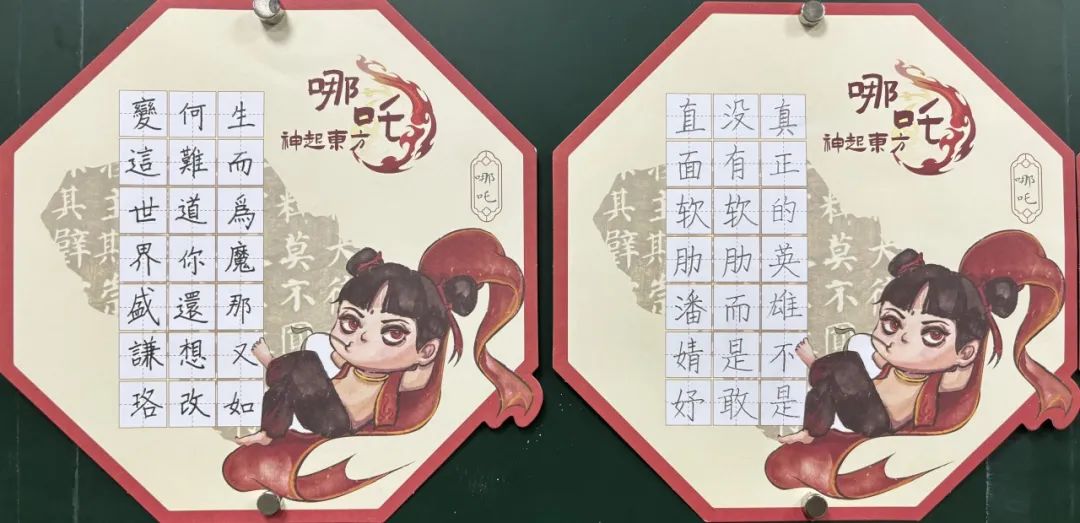 哪吒
神起東方
哪吒
生而爲魔那又如
何難道你還想改
變這世界盛謙珞
哪吒
神起東方
哪吒
真正的英雄不是
没有软肋而是敢
直面软肋潘婧妤